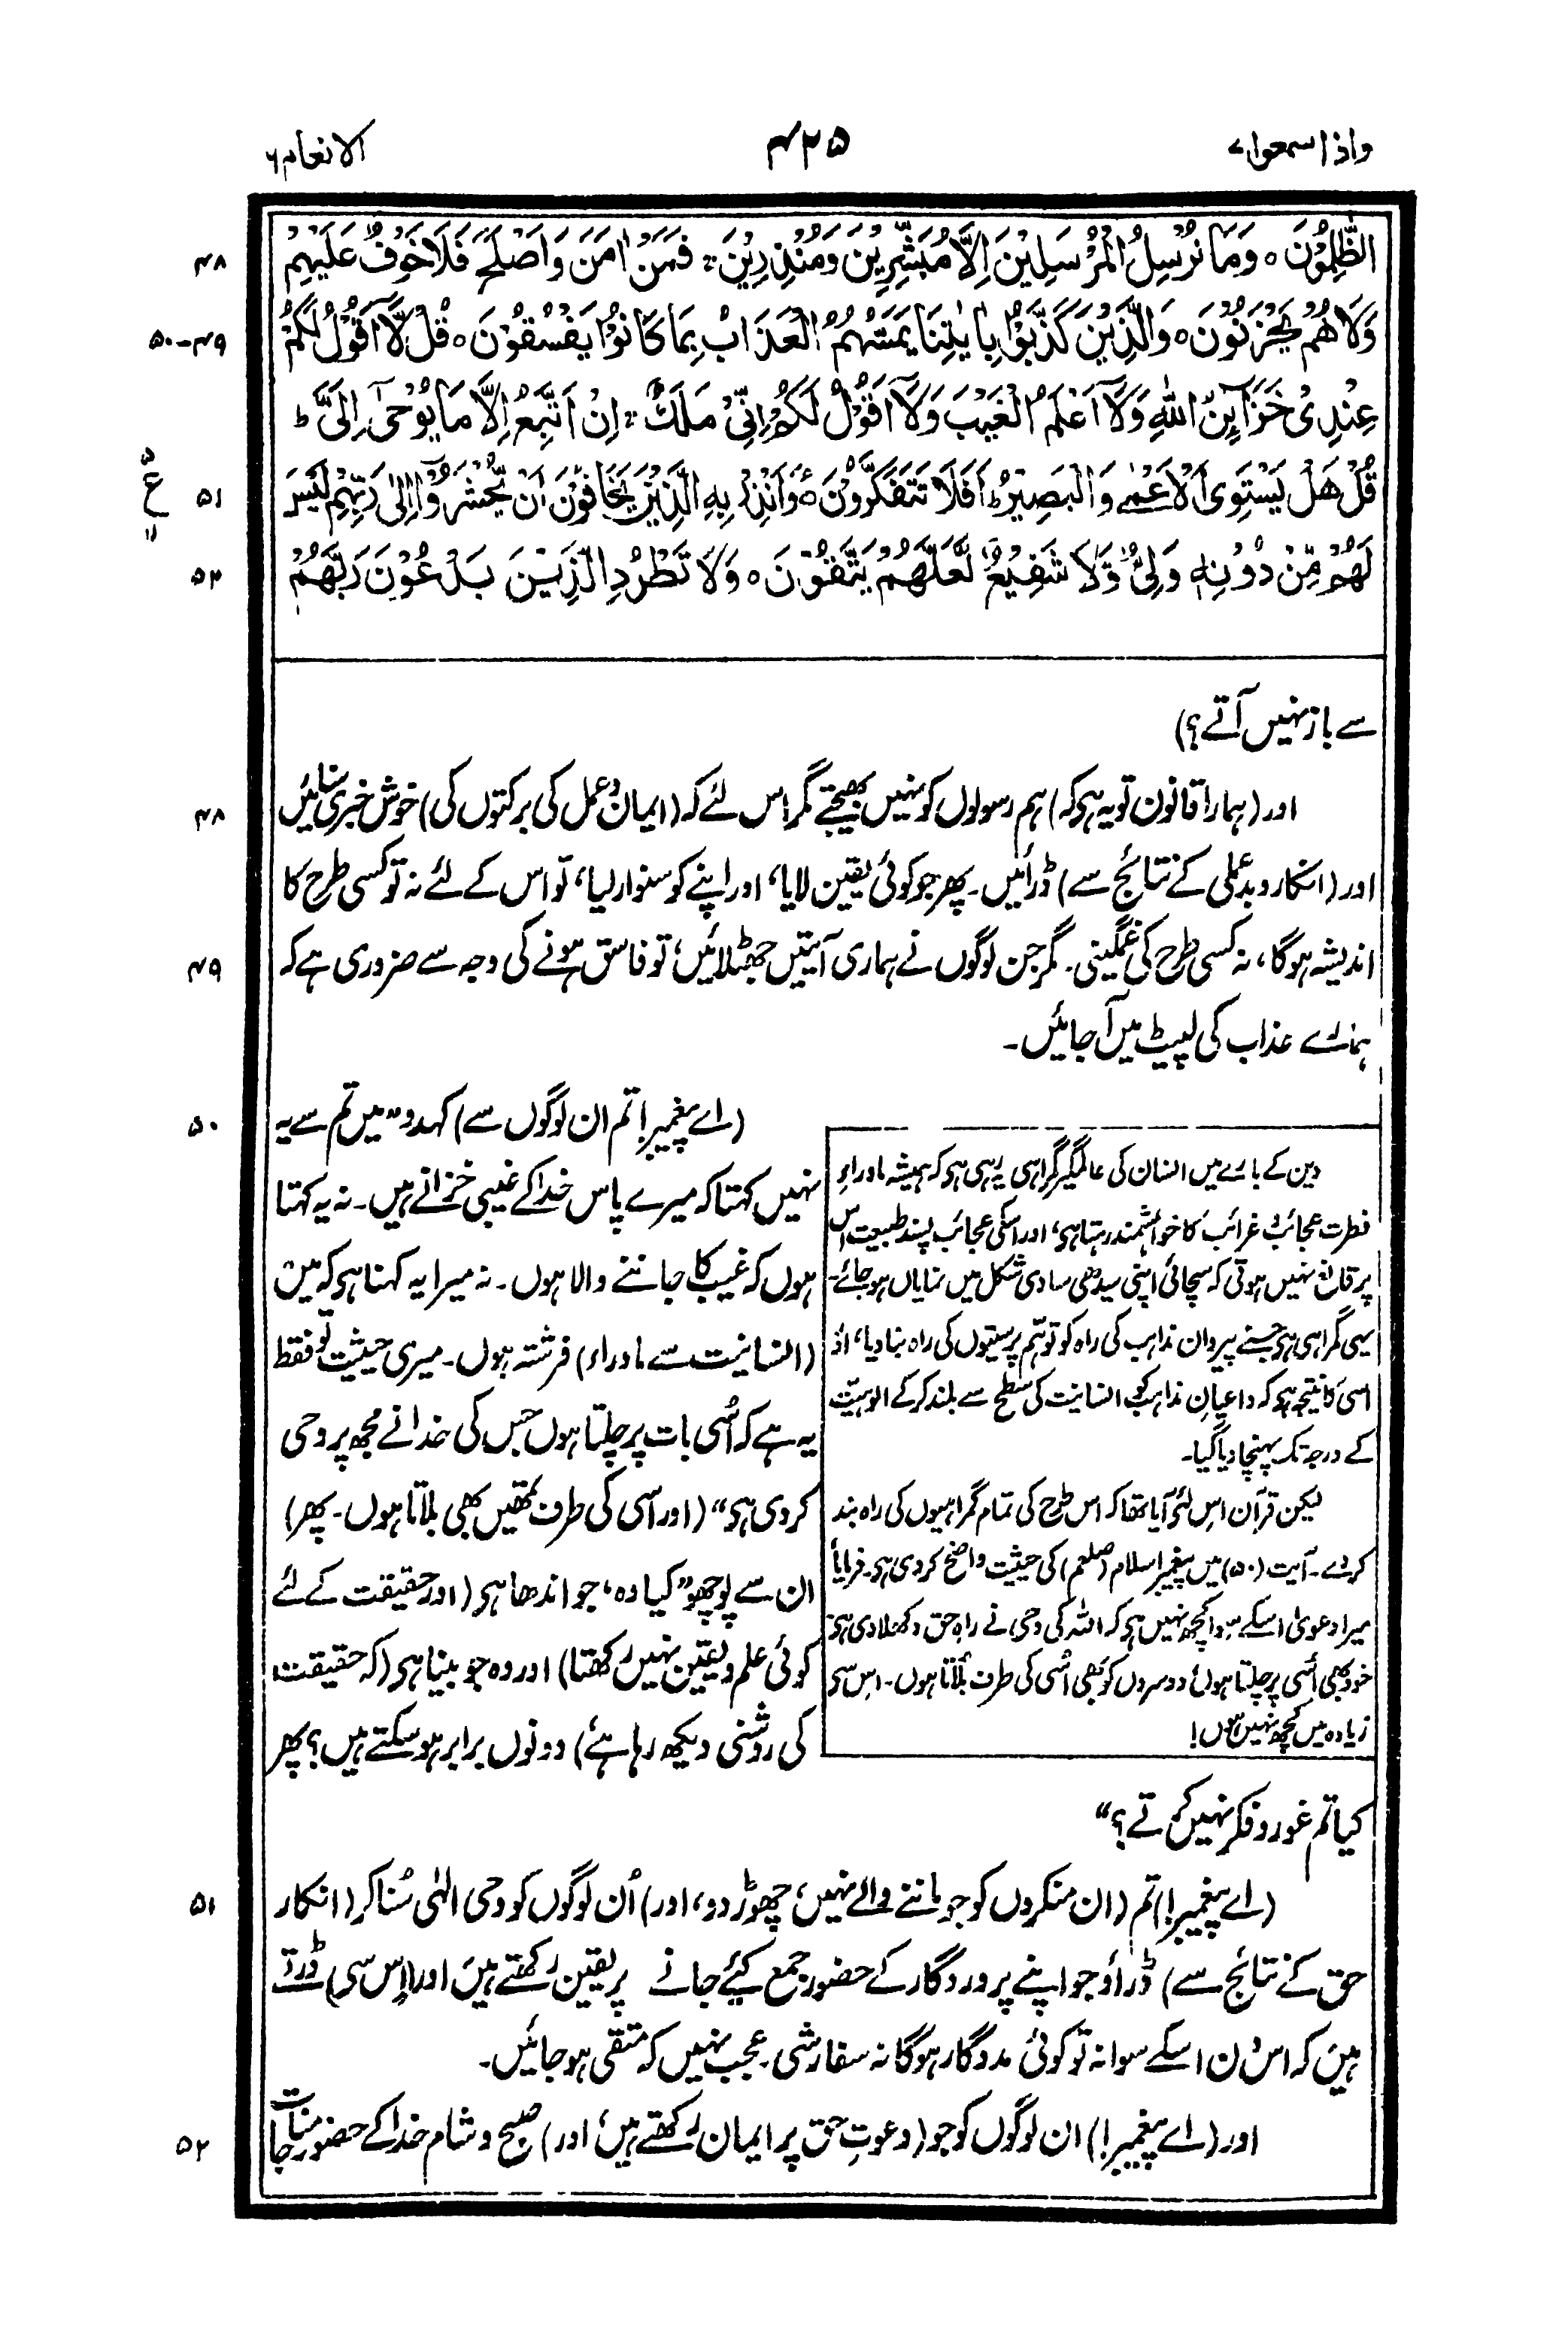 واذاسمعوا۷
۴۲۵
الانعام۶
الظّٰلِمُوْنَ ۰ وَمَا نُرْسِلُ الْمُرْسَلِيْنَ اِلَّا مُبَشِّرِيْنَ وَمُنْذِرِيْنَ ۚ فَمَنْ اٰمَنَ وَاَصْلَحَ فَلَا خَوْفٌ عَلَيْهِمْ
۴۸
وَلَا هُمْ يَحْزَنُوْنَ ۰ وَالَّذِيْنَ كَذَّبُوْا بِاٰيٰتِنَا يَمَسُّهُمُ الْعَذَابُ بِمَا كَانُوْا يَفْسُقُوْنَ ۰ قُلْ لَّآ اَقُوْلُ لَكُمْ
۴۹-۵۰
عِنْدِيْ خَزَآىِٕنُ اللّٰهِ وَلَآ اَعْلَمُ الْغَيْبَ وَلَآ اَقُوْلُ لَكُمْ اِنِّيْ مَلَكٌ ۚ اِنْ اَتَّبِعُ اِلَّا مَا يُوْحٰٓى اِلَيَّ ؕ
قُلْ هَلْ يَسْتَوِى الْاَعْمٰى وَالْبَصِيْرُ ؕ اَفَلَا تَتَفَكَّرُوْنَ ۰ وَاَنْذِرْ بِهِ الَّذِيْنَ يَخَافُوْنَ اَنْ يُّحْشَرُوْٓا اِلٰى رَبِّهِمْ لَيْسَ
۵۱
ع
۵
۱۱
لَهُمْ مِّنْ دُوْنِهٖ وَلِيٌّ وَّلَا شَفِيْعٌ لَّعَلَّهُمْ يَتَّقُوْنَ ۰ وَلَا تَطْرُدِ الَّذِيْنَ يَدْعُوْنَ رَبَّهُمْ
۵۲
سے باز نہیں آتے؟)
اور (ہمارا قانون تو یہ ہی کہ) ہم رسولوں کو نہیں بھیجتے مگر اس لئے کہ (ایمان و عمل کی برکتوں کی) خوش خبری سنائیں
۴۸
اور (انکار و بدعملی کے نتائج سے) ڈرائیں۔ پھر جو کوئی یقین لایا، اور اپنے کو سنوار لیا، تو اس کے لئے نہ تو کسی طرح کا
اندیشہ ہوگا، نہ کسی طرح کی غمگینی۔ مگر جن لوگوں نے ہماری آیتیں جھٹلائیں، تو فاسق ہونے کی وجہ سے ضروری ہے کہ
۴۹
ہمارے عذاب کی لپیٹ میں آ جائیں۔
(اے پیغمبر! تم ان لوگوں سے) کہدو "میں تم سے یہ
۵۰
نہیں کہتا کہ میرے پاس خدا کے غیبی خزانے ہیں۔ نہ یہ کہتا
ہوں کہ غیب کا جاننے والا ہوں۔ نہ میرا یہ کہنا ہی کہ میں
(انسانیت سے ماوراء) فرشتہ ہوں۔ میری حیثیت تو فقط
یہ ہے کہ اُسی بات پر چلتا ہوں جس کی خدا نے مجھ پر وحی
کردی ہی" (اور اسی کی طرف تمھیں بھی بلاتا ہوں۔ پھر)
ان سے پوچھو "کیا وہ، جو اندھا ہی (اور حقیقت کے لئے
کوئی علم و یقین نہیں رکھتا) اور وہ جو بینا ہی (کہ حقیقت
کی روشنی دیکھ رہا ہے) دونوں برابر ہو سکتے ہیں؟ پھر
دین کے بارے میں انسان کی عالمگیر گمراہی یہ رہی ہی کہ ہمیشہ ماوراءِ
فطرت عجائب و غرائب کا خواہشمند رہتا ہی، اور اسکی عجائب پسند طبیعت اس
پر قانع نہیں ہوتی کہ سچائی اپنی سیدھی سادی شکل میں نمایاں ہو جائے۔
یہی گمراہی ہی جسنے پیروان مذاہب کی راہ کو توہّم پرستیوں کی راہ بنا دیا، اور
اسی کا نتیجہ ہی کہ داعیانِ مذاہب کو انسانیت کی سطح سے بلند کر کے الوہیّت
کے درجہ تک پہنچا دیا گیا۔
لیکن قرآن اس لئے آیا تھا کہ اس طرح کی تمام گمراہیوں کی راہ بند
کر دے۔ آیت (۵۰) میں پیغمبر اسلام (صلعم) کی حیثیت واضح کر دی ہی۔ فرمایا
میرا دعویٰ اسکے سوا کچھ نہیں ہی کہ اللہ کی وحی نے راہِ حق دکھلا دی ہی
خود بھی اُسی پر چلتا ہوں، دوسروں کو بھی اُسی کی طرف بلاتا ہوں۔ اس سی
زیادہ میں کچھ نہیں ہوں!
کیا تم غور و فکر نہیں کرتے؟"
(اے پیغمبر!) تم (ان منکروں کو جو ماننے والے نہیں، چھوڑ دو، اور) اُن لوگوں کو وحی الٰہی سُنا کر (انکار
۵۱
حق کے نتائج سے) ڈراؤ جو اپنے پروردگار کے حضور جمع کیئے جانے پر یقین رکھتے ہیں اور (اس سی) ڈرتے
ہیں کہ اس دن اسکے سوا نہ تو کوئی مددگار ہوگا نہ سفارشی۔ عجب نہیں کہ متقی ہو جائیں۔
اور (اے پیغمبر!) ان لوگوں کو جو (دعوتِ حق پر ایمان رکھتے ہیں، اور) صبح و شام خدا کے حضور مناجات
۵۲